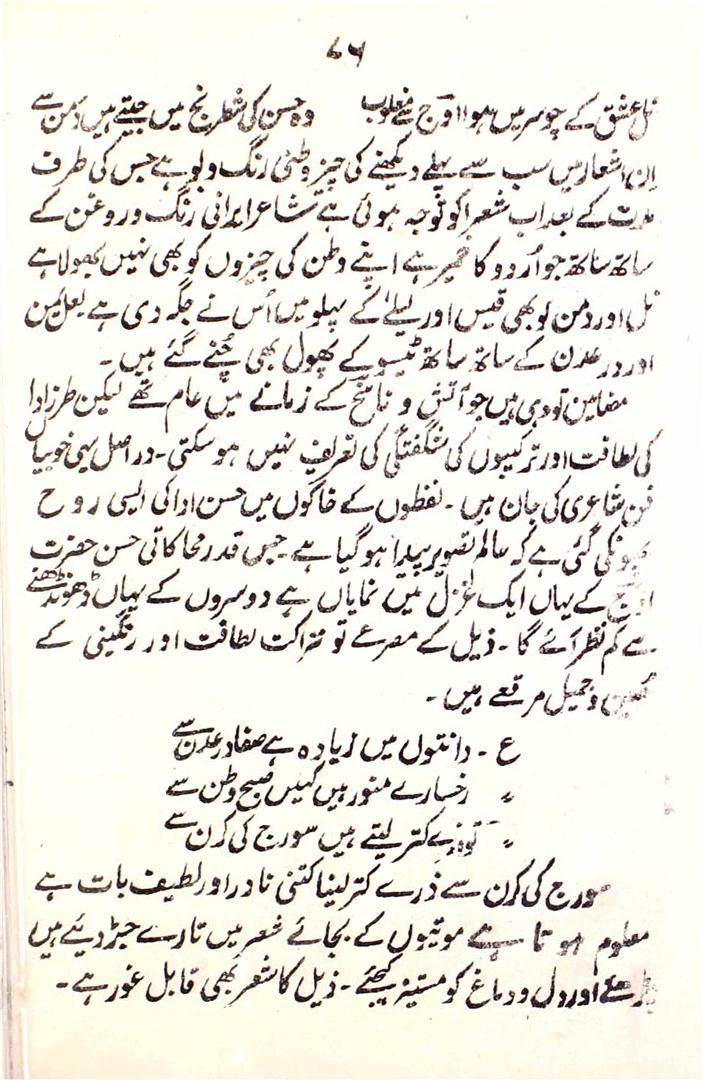 ۷۶
نل عشق کے چوسر میں ہوا اوج سے مغلوب وہ حسن کی شطرنج میں جیتے ہیں دمن سے
اِن اشعار میں سب سے پہلے دیکھنے کی چیز وطنی رنگ و بو ہے جس کی طرف
مدت کے بعد اب شعرا کو توجہ ہوئی ہے شاعر ایرانی رنگ و روغن کے
ساتھ ساتھ جو اُردو کا خمیر ہے اپنے وطن کی چیزوں کو بھی نہیں بھولا ہے
نل اور دمن کو بھی قیس اور لیلےٰ کے پہلو میں اُس نے جگہ دی ہے لعل یمن
اور در عدن کے ساتھ ساتھ ٹیسو کے پھول بھی چُنے گئے ہیں۔
مضامین تو وہی ہیں جو آتش و ناسخ کے زمانے میں عام تھے لیکن طرز ادا
کی لطافت اور ترکیبوں کی شگفتگی کی تعریف نہیں ہو سکتی۔ دراصل یہی خوبیاں
فن شاعری کی جان ہیں۔ لفظوں کے خاکوں میں حسن ادا کی ایسی روح
پھونکی گئی ہے کہ عالم تصویر پیدا ہو گیا ہے۔ جس قدر محاکاتی حسن حضرت
اوج کے یہاں ایک غزل میں نمایاں ہے دوسروں کے یہاں ڈھونڈھنے
سے کم نظر آئے گا۔ ذیل کے مصرعے تو نزاکت لطافت اور رنگینی کے
حسین و جمیل مرقعے ہیں۔
ع۔ دانتوں میں زیادہ ہے صفا در عدن سے
〃 رخسارے منور ہیں کہیں صبح وطن سے
〃 کتر لیتے ہیں سورج کی کرن سے
سورج کی کرن سے ذرے کتر لینا کتنی نادر اور لطیف بات ہے
معلوم ہوتا ہے موتیوں کے بجائے شعر میں تارے جڑ دیئے ہیں
پڑھئے اور دل و دماغ کو مستنیر کیجئے۔ ذیل کا شعر بھی قابل غور ہے۔